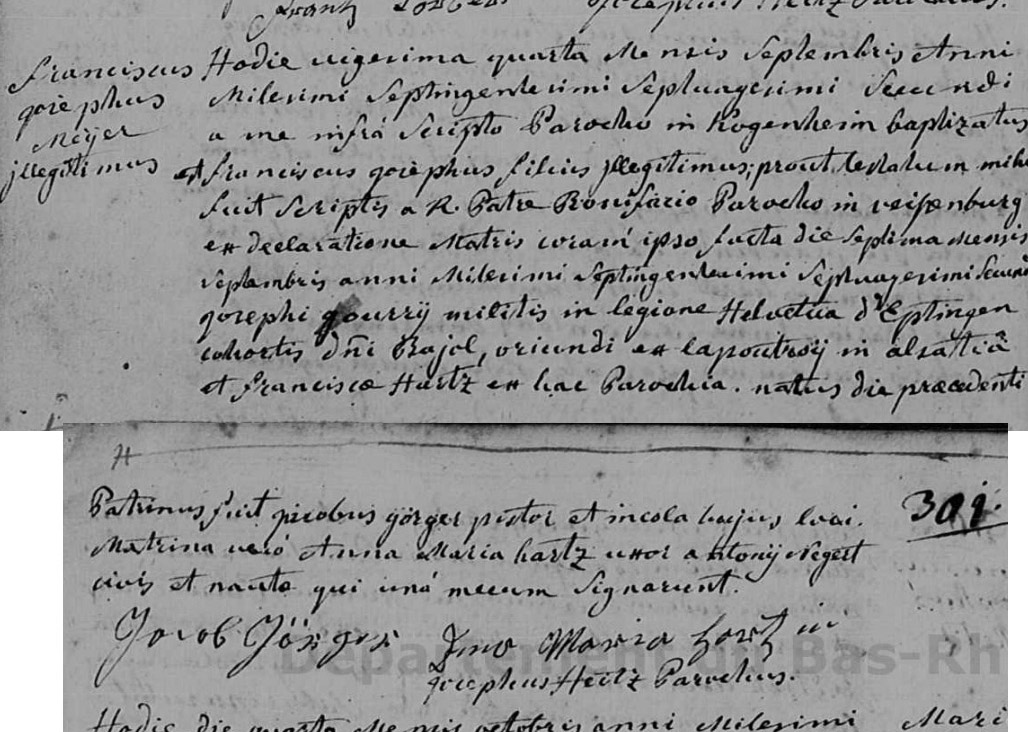 Frantz
Josephus Hertz Parochus.
Franciscus
josephus
Meyer
jllegitimus
Hodie vigesima quarta Mensis Septembris Anni
Milesimi Septingentesimi Septuagesimi Secundi
a me infrà Scripto Parocho in Kogenheim baptizatus
est franciscus josephus filius jllegitimus; prout testatum mihi
fuit Scriptis a R. Patre Bonifacio Parocho in veisenburg
ex declaratione Matris coram ipso facta die Septima Mensis
Septembris anni Milesimi Septingentesimi Septuagesimi Secundi
josephi gourrij militis in legione Helvetica d'Eptingen
cohortis dñi Bajol, oriundi ex lapoutroij in alsatiâ
et franciscæ Hartz ex hac Parochia. natus die præcedenti
H
301.
Patrinus fuit jacobus görger pistor et incola hujus loci.
Matrina verò Anna Maria hartz uxor antonij Negert
civis et nautæ qui unà mecum Signarunt.
Jacob Görger Anna Maria hartz in
Josephus Hertz Parochus.
Departement du Bas-Rh
Hodie die quarta Mensis octobris anni Milesimi
Mari